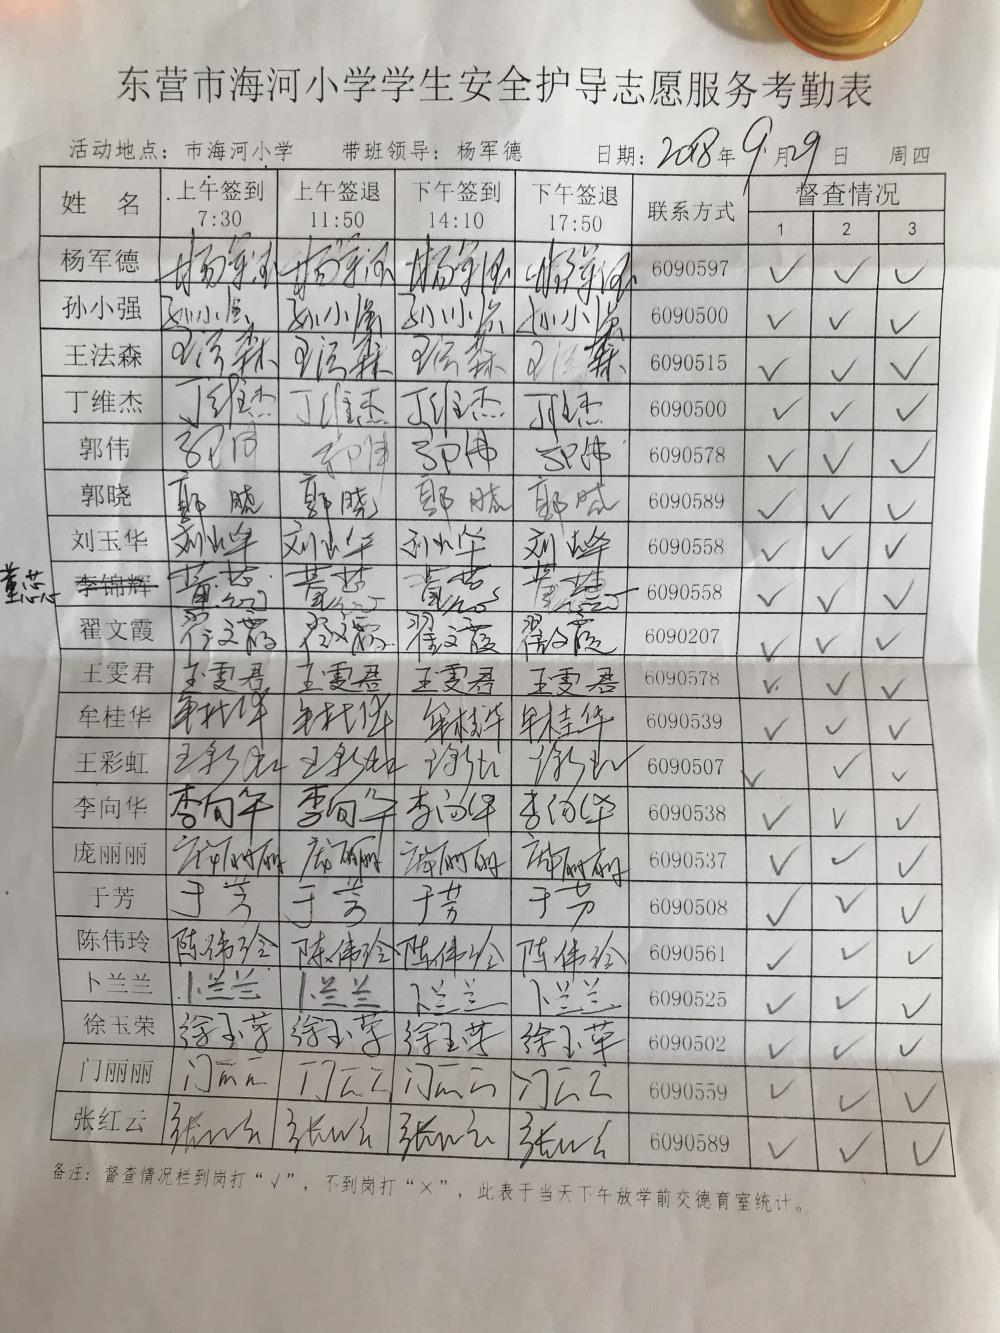 东营市海河小学学生安全护导志愿服务考勤表
活动地点：市海河小学 带班领导：杨军德 日期：2018年9月29日 周四
姓 名 上午签到 7:30 上午签退 11:50 下午签到 14:10 下午签退 17:50 联系方式 督查情况
1 2 3
杨军德 杨军德 杨军德 杨军德 杨军德 6090597 ✓ ✓ ✓
孙小强 孙小强 孙小强 孙小强 孙小强 6090500 ✓ ✓ ✓
王法森 王法森 王法森 王法森 王法森 6090515 ✓ ✓ ✓
丁维杰 丁维杰 丁维杰 丁维杰 丁维杰 6090500 ✓ ✓ ✓
郭伟 郭伟 郭伟 郭伟 郭伟 6090578 ✓ ✓ ✓
郭晓 郭晓 郭晓 郭晓 郭晓 6090589 ✓ ✓ ✓
刘玉华 刘玉华 刘玉华 刘玉华 刘玉华 6090558 ✓ ✓ ✓
董芯芯 李锦辉 董芯芯 董芯芯 董芯芯 董芯芯 6090558 ✓ ✓ ✓
翟文霞 翟文霞 翟文霞 翟文霞 翟文霞 6090207 ✓ ✓ ✓
王雯君 王雯君 王雯君 王雯君 王雯君 6090578 ✓ ✓ ✓
牟桂华 牟桂华 牟桂华 牟桂华 牟桂华 6090539 ✓ ✓ ✓
王彩虹 王彩虹 王彩虹 王彩虹 王彩虹 6090507 ✓ ✓ ✓
李向华 李向华 李向华 李向华 李向华 6090538 ✓ ✓ ✓
庞丽丽 庞丽丽 庞丽丽 庞丽丽 庞丽丽 6090537 ✓ ✓ ✓
于芳 于芳 于芳 于芳 于芳 6090508 ✓ ✓ ✓
陈伟玲 陈伟玲 陈伟玲 陈伟玲 陈伟玲 6090561 ✓ ✓ ✓
卜兰兰 卜兰兰 卜兰兰 卜兰兰 卜兰兰 6090525 ✓ ✓ ✓
徐玉荣 徐玉荣 徐玉荣 徐玉荣 徐玉荣 6090502 ✓ ✓ ✓
门丽丽 门丽丽 门丽丽 门丽丽 门丽丽 6090559 ✓ ✓ ✓
张红云 张红云 张红云 张红云 张红云 6090589 ✓ ✓ ✓
备注：督查情况栏到岗打“√”，不到岗打“×”，此表于当天下午放学前交德育室统计。